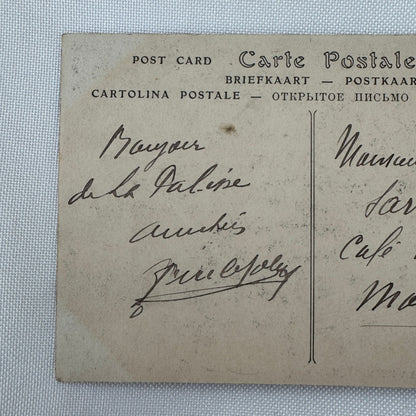 POST CARD Carte Postale
BRIEFKAART — POSTKAAR
CARTOLINA POSTALE — ОТКРЫТОЕ ПИСЬМО
Bonjour
de La Palisse
amitiés
Monsieur
Café